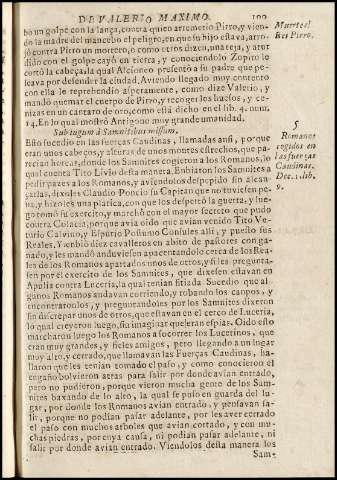 DE VALERIO MAXIMO. 100
bo un golpe con la lança, contra quien arremetio Pirro, y vien-
do la madre del mancebo el peligro, en que su hijo estava, arro-
jó contra Pirro un mortero, ó como otros dizen, una teja, y atur
dido con el golpe cayó en tierra, y conociendolo Zopiro le
cortó la cabeça, la qual Alcioneo presentó a su padre que pe-
leava por defender la ciudad. Aviendo llegado muy contento
con ella le reprehendió asperamente, como dize Valerio, y
mandó quemar el cuerpo de Pirro, y recoger los huessos, y ce-
nizas en un cantaro de oro, como ella dicho en el lib. 4. num.
14. En lo qual mostró Antigono muy grande umanidad.
Sub iugum à Samnitibus missum.
Esto sucedio en las fuerças Caudinas, llamadas ansi, porque
eran unas cabeças, y alturas de unos montes estrechos, que pa-
recian horcas, donde los Samnites cogieron a los Romanos, lo
qual cuenta Tito Livio desta manera. Enbiaron los Samnites a
pedir paves a los Romanos, y aviendolos despedido sin alcan-
çarlas, dixoles Claudio Poncio su Capitan que no tuviesen pe-
na, y hizoles una platica, con que los despertó la guerra, y lue-
go tomó su exercito, y marchó con el mayor secreto que pudo
contra Colacia, porque avia oido que avian venido Tito Ve-
turio Calvino, y Espurio Postumo Consules alli, y puesto sus
Reales. Y enbió diez cavalleros en abito de pastores con ga-
nado, y les mandó anduviesen apacentandolo cerca de los Rea-
les de los Romanos apartados unos de otros, y si les pregunta-
sen por el exercito de los Samnites, que dixesen estavan en
Apulia contra Luceria, la qual tenian sitiada. Sucedio que al-
gunos Romanos andavan corriendo, y robando los campos, y
encontraronlos, y preguntandoles por los Samnites dixeron
sin discrepar unos de otros, que estavan en el cerco de Luceria,
lo qual creyeron luego, sin imaginar que eran espias. Oido esto
marcharon luego los Romanos a socorrer los Lucerinos, que
eran muy grandes, y fieles amigos, pero llegando a un lugar
muy alto, y cerrado, que llamavan las Fuerças Caudinas, ha-
llaron que les tenian tomado el paso, y como conocieron el
engaño bolvieron atras para salir por donde avian entrado,
pero no pudieron, porque vieron mucha gente de los Sam-
nites baxando de lo alto, la qual se puso en guarda del lu-
gar, por donde los Romanos avian entrado, y pensavan sa-
lir, porque no podian pasar adelante, por les aver cerrado
el paso con muchos arboles que avian cortado, y con mu-
chas piedras, por cuya causa, ni podian pasar adelante, ni
salir por donde avian entrado. Viendolos desta manera los
Sam-
Muerte ol
Rei Pirro.
5
Romanos
cogidos en
las fuerças
Caudinas.
Dec. 1. lib.
9.